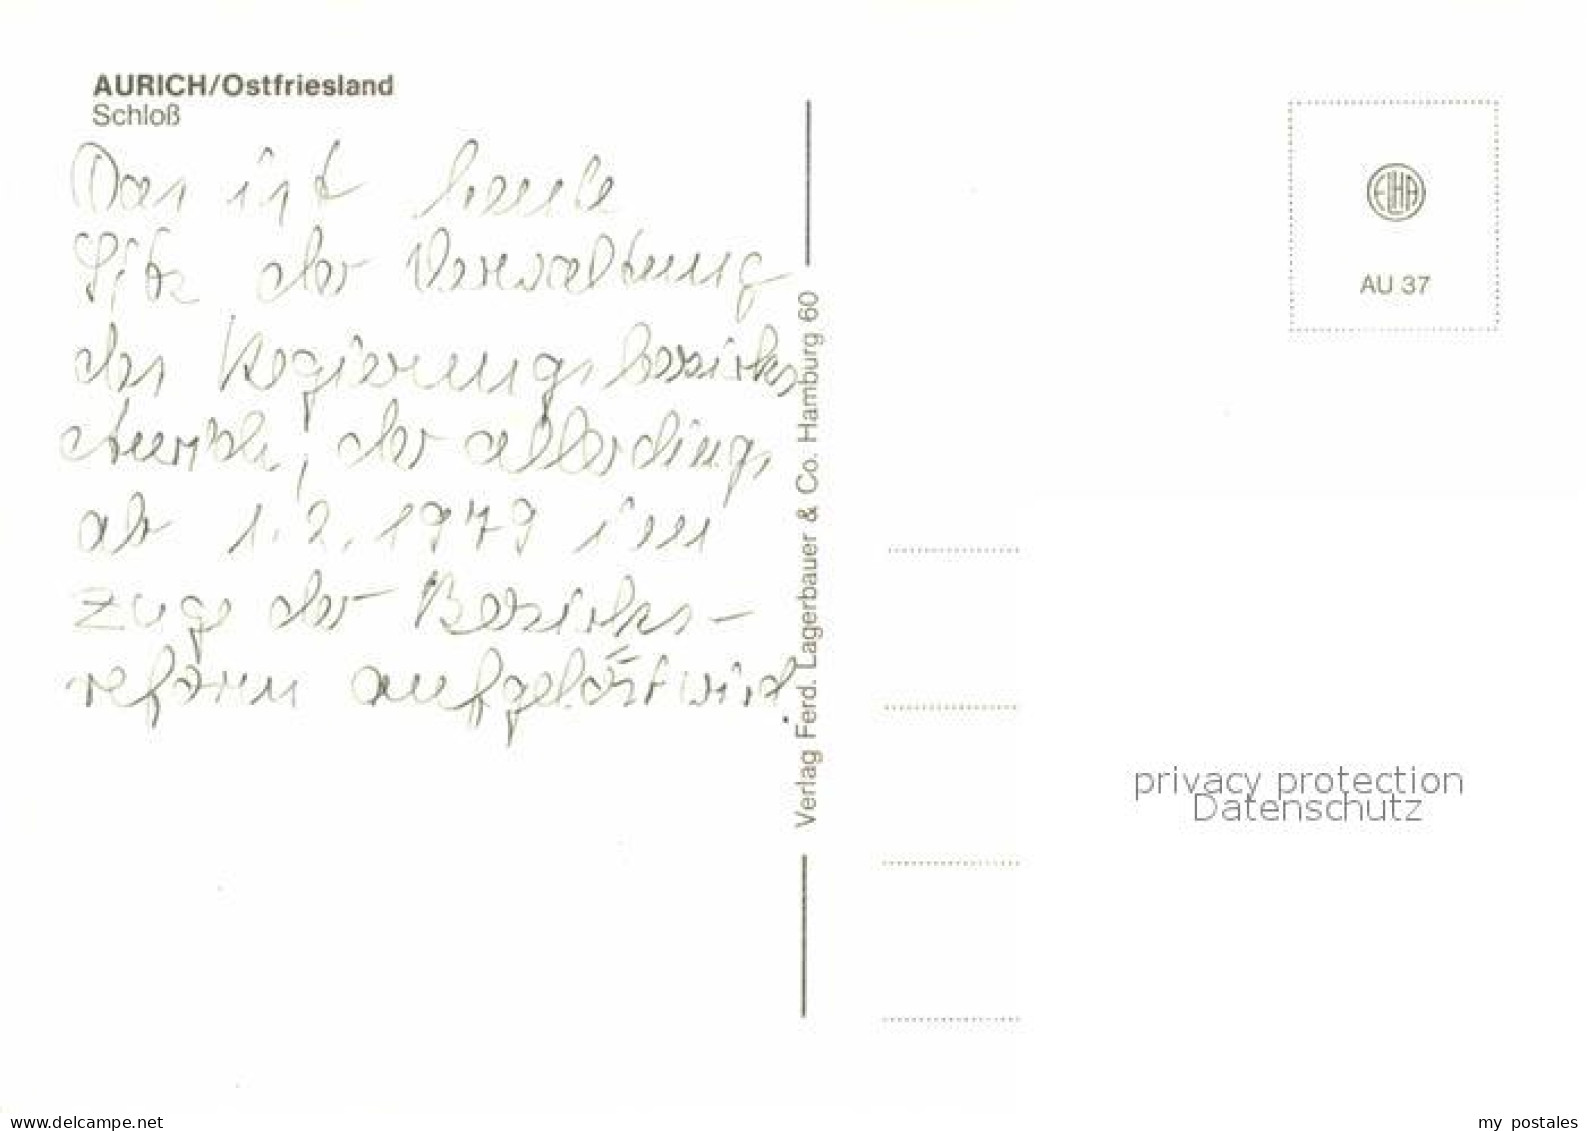 AURICH/Ostfriesland
Schloß
Das ist heute
Sitz der Verwaltung
des Regierungsbezirks
Aurich, der allerdings
ab 1.2.1979 im
Zuge der Bezirks-
reform aufgelöst wird.
Verlag Ferd. Lagerbauer & Co. Hamburg 60
FLHA
AU 37
privacy protection
Datenschutz
www.delcampe.net
my postales